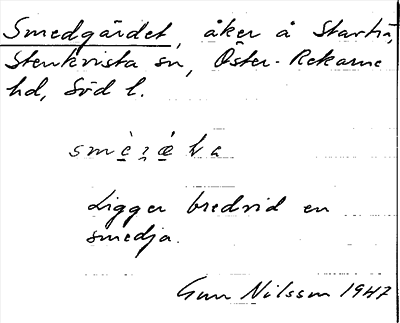 Smedgärdet, åker å Starta,
Stenkvista sn, Öster-Rekarne
hd, Söd l.
Ligger bredvid en
smedja.
Gun Nilsson 1947